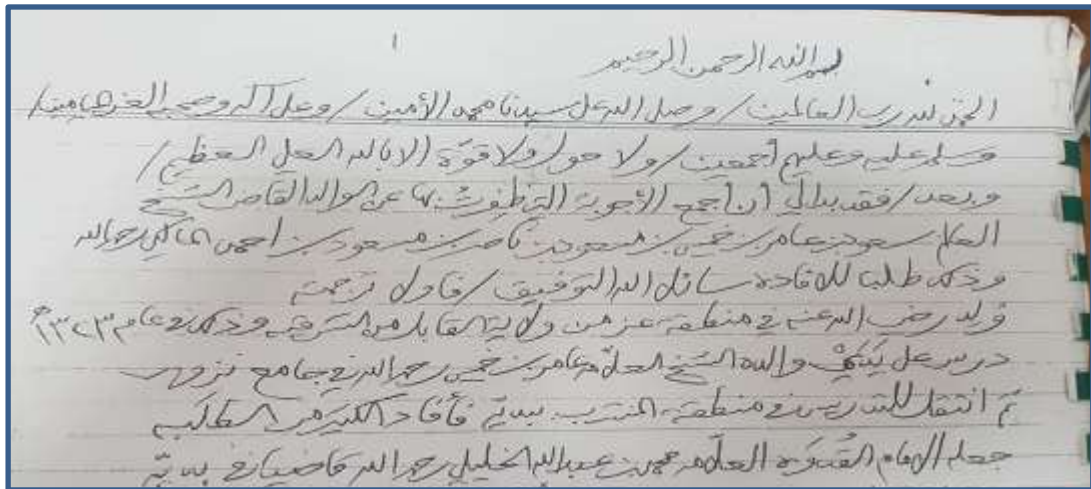 ١
بسم الله الرحمن الرحيم
الحمد لله رب العالمين / وصلى الله على سيدنا محمد الأمين / وعلى آله وصحبه الغر الميامين /
وسلم عليه وعليهم أجمعين / ولا حول ولا قوة إلا بالله العلي العظيم /
وبعد / فقد بدا لي أن أجمع الأجوبة التي ظفرت بها عن الوالد القاضي الشيخ
العلامة سعود بن عامر بن خميس بن مسعود بن ناصر بن مسعود بن أحمد المالكي رحمه الله
وذلك طلبا للافادة سائلا الله التوفيق / فأولا ترجمته
وُلد رضي الله عنه في منطقة عز من ولاية القابل من الشرقية وذلك في عام ١٣٢٣هـ
درس على يَدَيْ والده الشيخ العلامة عامر بن خميس رحمه الله في جامع نزوى
ثم انتقل للتدريس في منطقة المنترب ببدية فأفاد الكثير من الطلبة
جعله الإمام القُدوَة العلامة محمد بن عبدالله الخليلي رحمه الله قاضيا في بدية